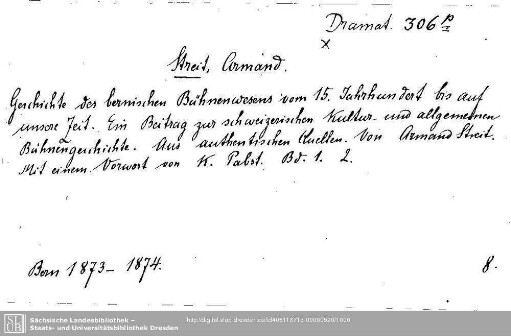 Dramat. 306 p
x
Streit, Armand.
Geschichte des bernischen Bühnenwesens vom 15. Jahrhundert bis auf
unsere Zeit. Ein Beitrag zur schweizerischen Kultur- und allgemeinen
Bühnengeschichte. Aus authentischen Quellen. Von Armand Streit.
Mit einem Vorwort von K. Pabst. Bd. 1. 2.
Bern 1873-1874.
8.
Sächsische Landesbibliothek –
Staats- und Universitätsbibliothek Dresden